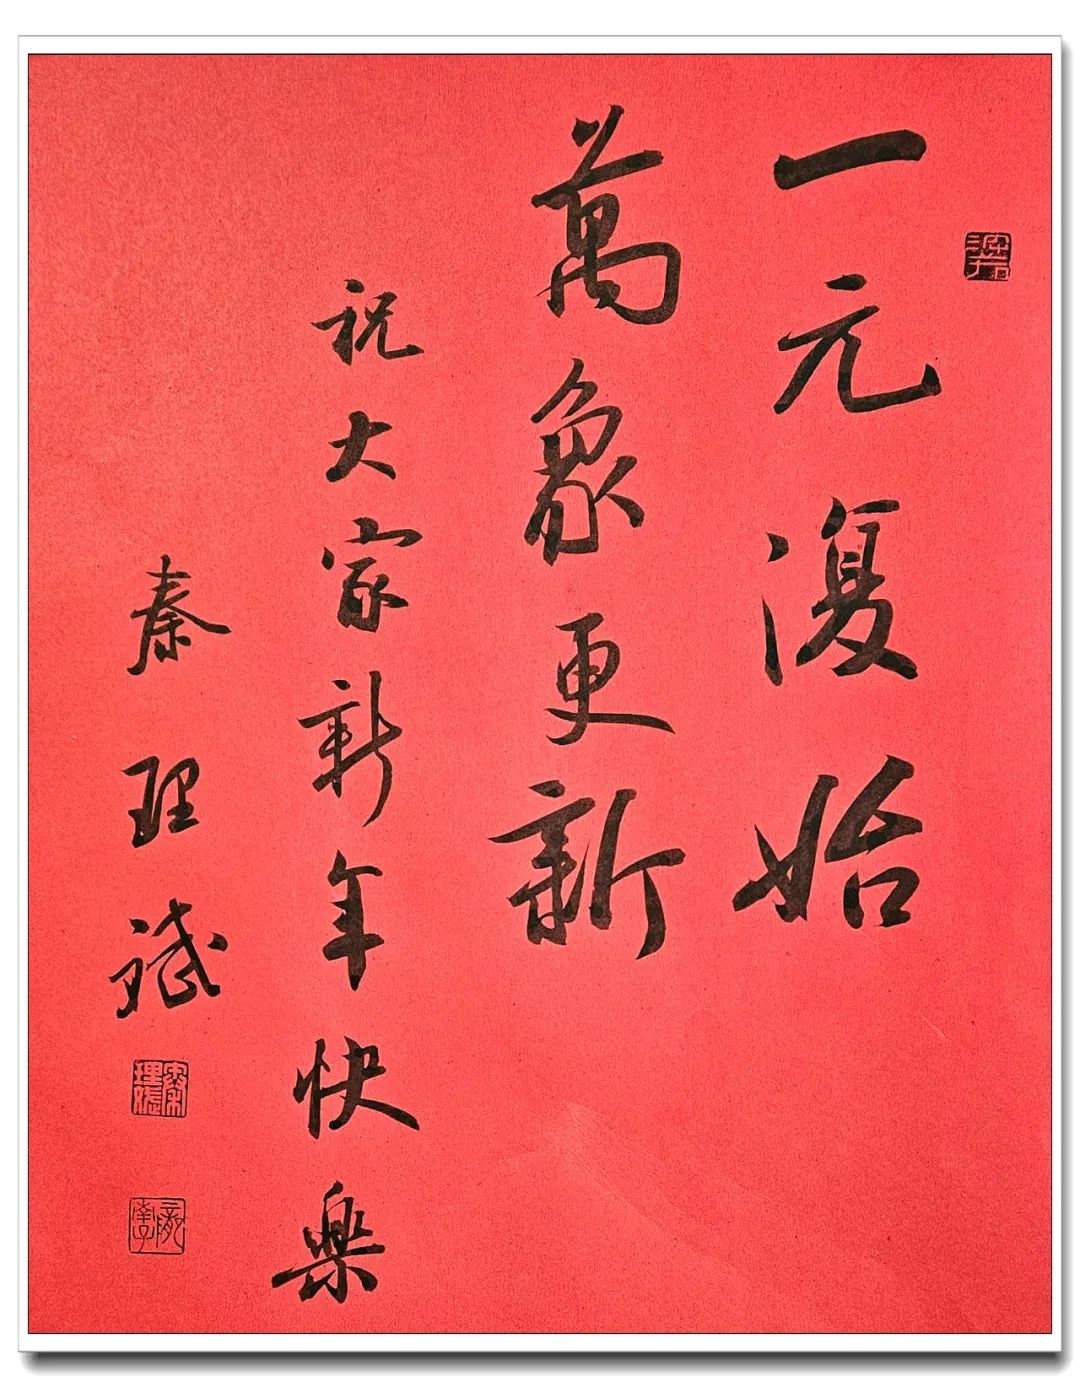 一元復始
萬象更新
祝大家新年快樂
秦理斌